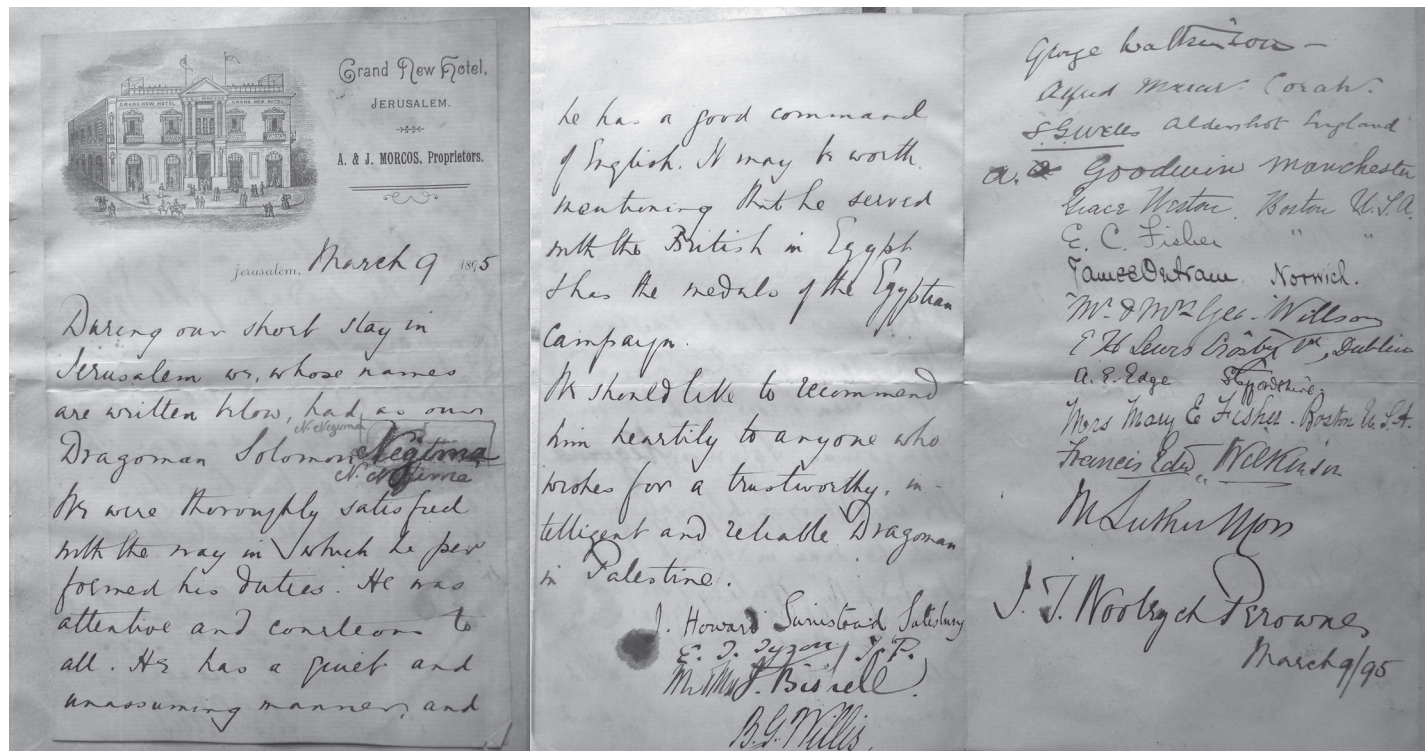 GRAND NEW HOTEL GRAND NEW HOTEL
Grand New Hotel,
JERUSALEM.
A. & J. MORCOS, Proprietors.
Jerusalem, March 9 1895
During our short stay in
Jerusalem we, whose names
are written below, had as our
N. Negima
Dragoman Solomon Negima
N. Negima
We were thoroughly satisfied
with the way in which he per
formed his duties. He was
attentive and courteous to
all. He has a quiet and
unassuming manner, and
he has a good command
of English. It may be worth
mentioning that he served
with the British in Egypt
& has the medals of the Egyptian
Campaign.
We should like to recommend
him heartily to anyone who
wishes for a trustworthy, in-
telligent and reliable Dragoman
in Palestine.
J. Howard Salisbury
E. T. Tyzon J.P.
Mr & Mrs J. Bissell.
B. G. Willis.
George Watkinson
Alfred Corah.
S. G. Wells Aldershot England
A. Goodwin Manchester
Grace Weston. Boston U.S.A.
E. C. Fisher " "
James Outram. Norwich.
Mr. & Mrs Geo. Willson
E H Lewis Crosby Dublin
A. E. Edge Staffordshire.
Mrs Mary E Fisher. Boston U.S.A.
Francis Edw. Wilkinson
M Luther
J. T. Woolrych Perowne
March 9/95